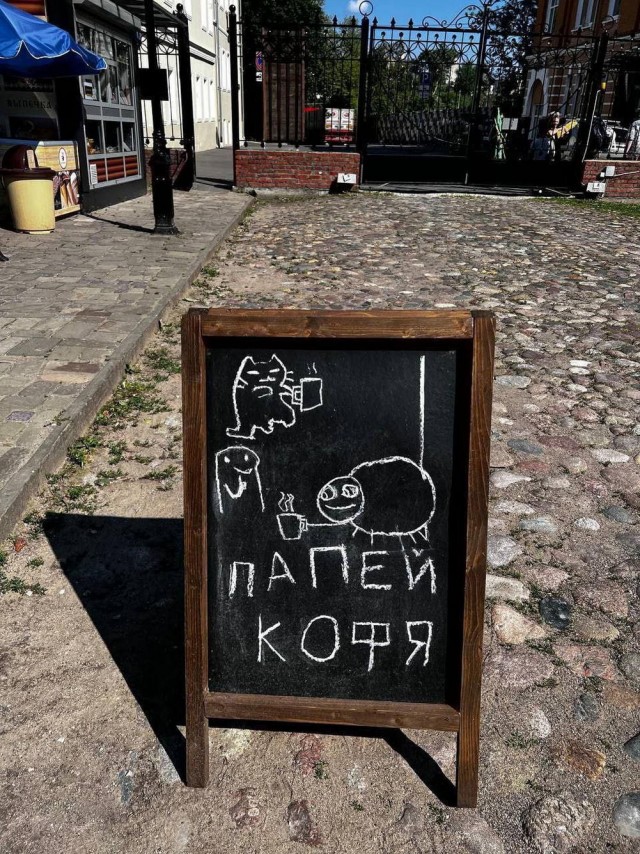 ПАПЕЙ
КОФЯ